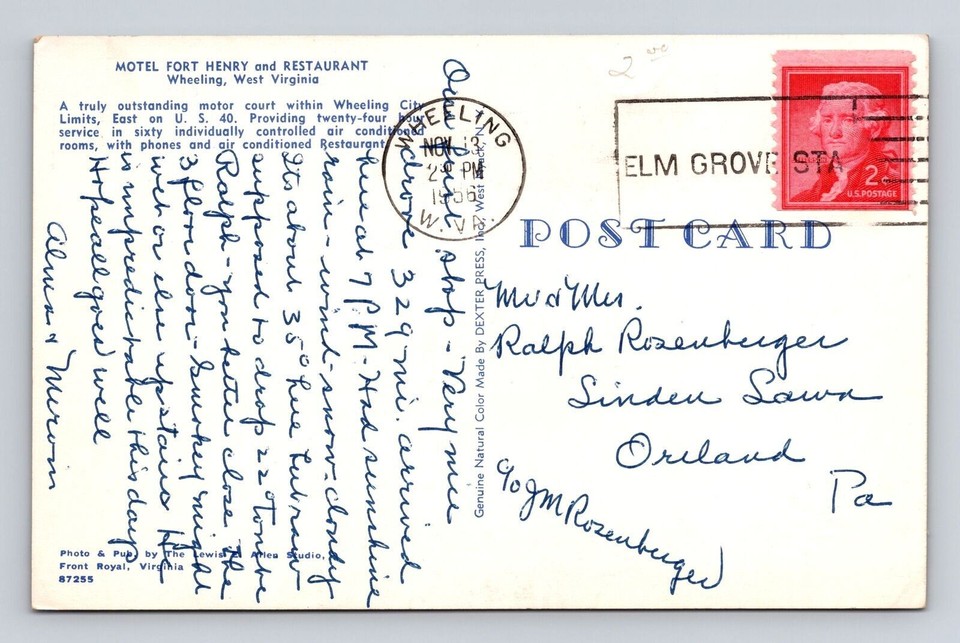 MOTEL FORT HENRY and RESTAURANT
Wheeling, West Virginia
A truly outstanding motor court within Wheeling City
Limits, East on U. S. 40. Providing twenty-four hour
service in sixty individually controlled air conditioned
rooms, with phones and air conditioned Restaurant.
Our 1st stop - Very nice
drove 329 mi. arrived
here at 7 P.M. - Had sunshine
rain - wind - snow - cloudy
Its about 35° here but
supposed to drop 22° Tonite
Ralph - you better close the
3rd floor door - Smokey might
wet or else upstairs He
is unpredictable this days
Hope all goes well
Alma &
Photo & Pub. by The Lewis E. Allen Studio,
Front Royal, Virginia
87255
Genuine Natural Color Made By DEXTER PRESS, Inc., West Nyack, N.
WHEELING
NOV 13
2 PM
1956
W. VA.
2.00
ELM GROVE STA
2¢
U.S. POSTAGE
POST CARD
Mr & Mrs.
Ralph Rosenberger
Linden Lawn
Oreland
Pa
c/o J M Rosenberger